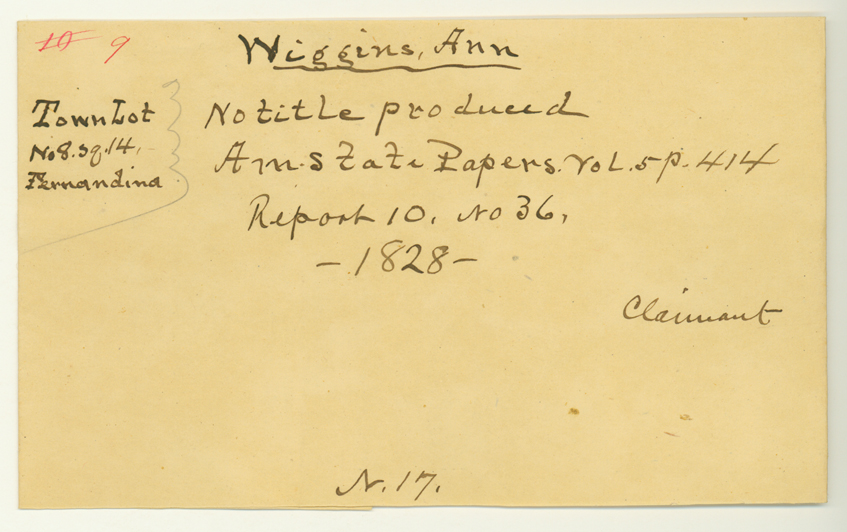 10 9
Wiggins, Ann
Town Lot
No 8. Sq. 14.
Fernandina
No title produced
Am. State Papers. Vol. 5 p. 414
Report 10. No 36.
- 1828 -
Claimant
N. 17.